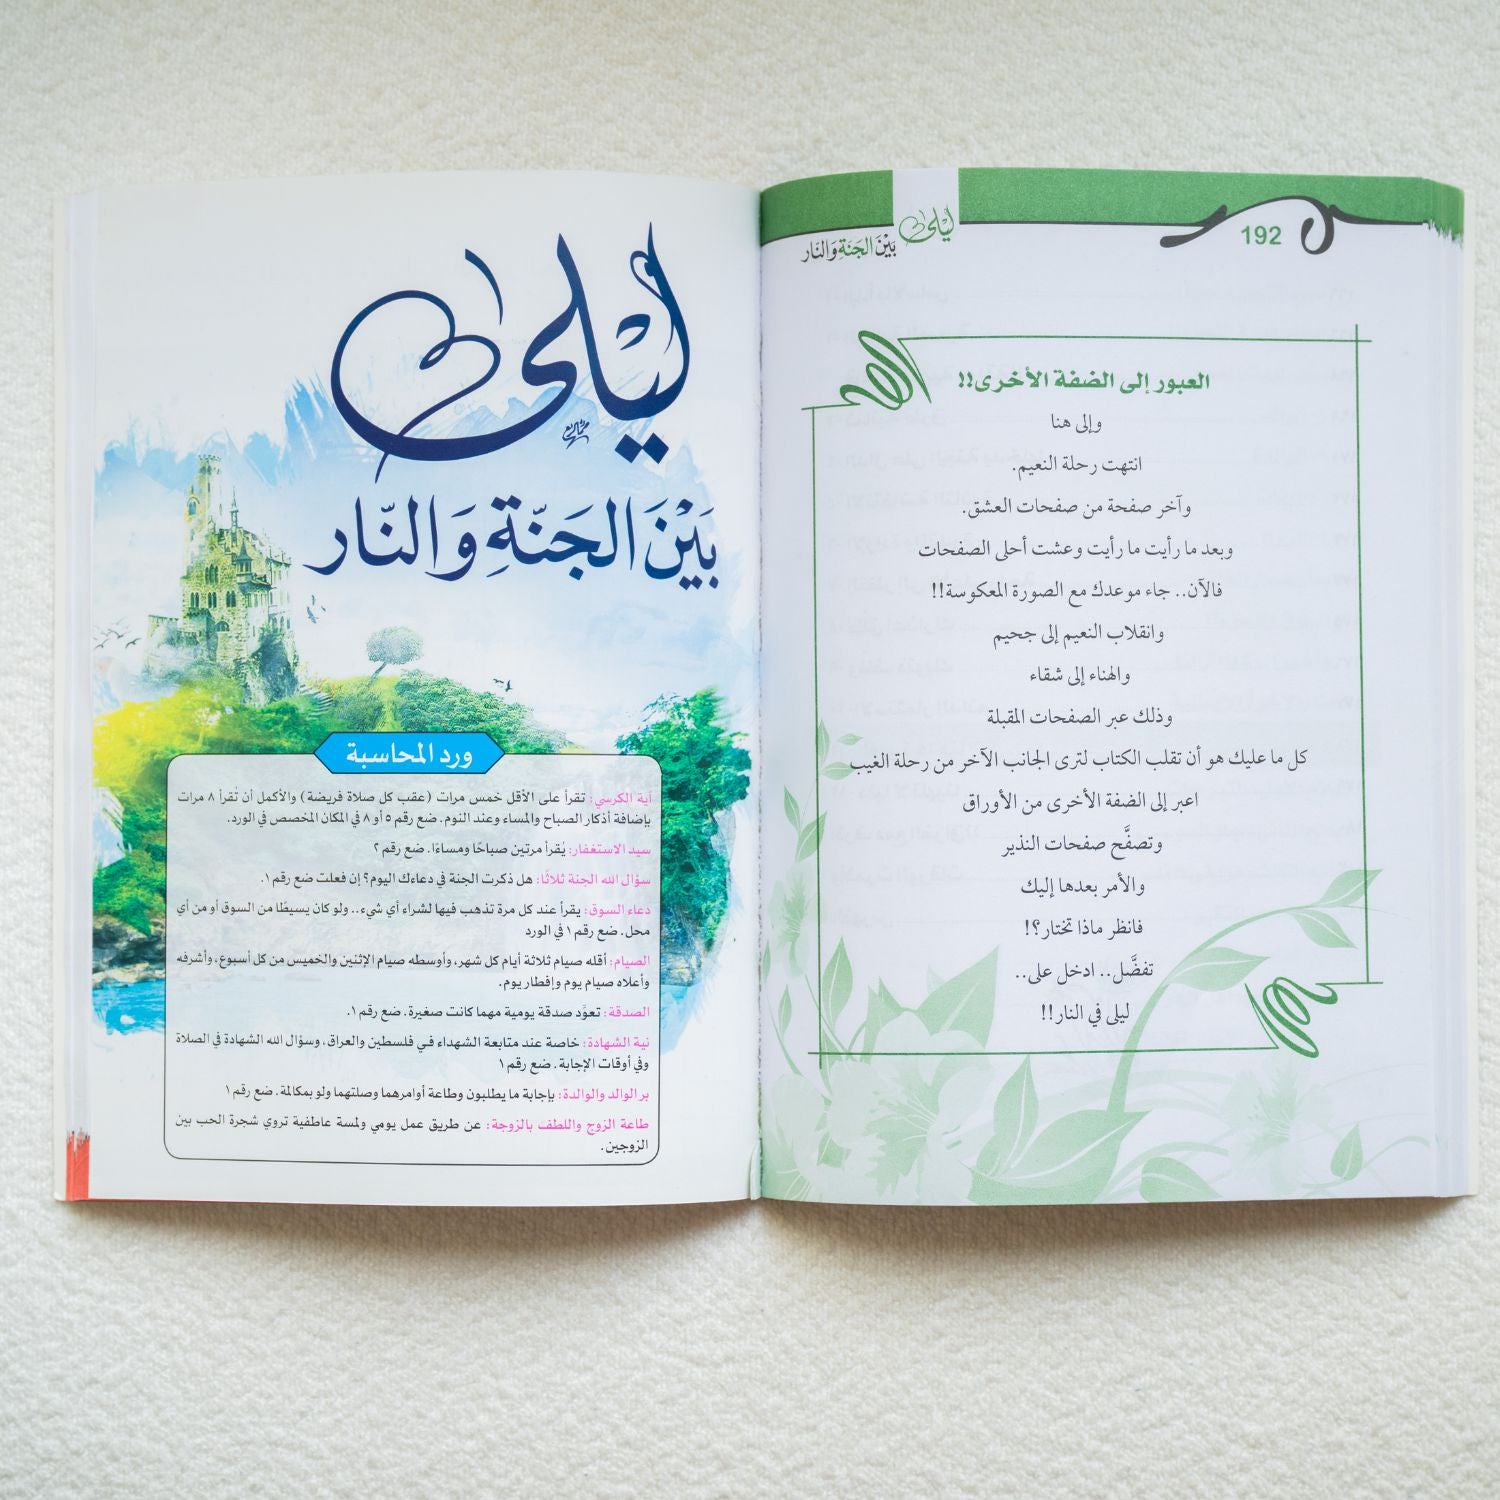 192
ليلى
بَيْنَ الجَنَّةِ وَالنَّار
العبور إلى الضفة الأخرى!!
وإلى هنا
انتهت رحلة النعيم.
وآخر صفحة من صفحات العشق.
وبعد ما رأيت ما رأيت وعشت أحلى الصفحات
فالآن.. جاء موعدك مع الصورة المعكوسة!!
وانقلاب النعيم إلى جحيم
والهناء إلى شقاء
وذلك عبر الصفحات المقبلة
كل ما عليك هو أن تقلب الكتاب لترى الجانب الآخر من رحلة الغيب
اعبر إلى الضفة الأخرى من الأوراق
وتصفَّح صفحات النذير
والأمر بعدها إليك
فانظر ماذا تختار؟!
تفضَّل.. ادخل على..
ليلى في النار!!
ليلى
بَيْنَ الجَنَّةِ وَالنَّار
ورد المحاسبة
آية الكرسي: تقرأ على الأقل خمس مرات (عقب كل صلاة فريضة) والأكمل أن تُقرأ ٨ مرات
بإضافة أذكار الصباح والمساء وعند النوم. ضع رقم ٥ أو ٨ في المكان المخصص في الورد.
سيد الاستغفار: يُقرأ مرتين صباحًا ومساءًا. ضع رقم ٢
سؤال الله الجنة ثلاثًا: هل ذكرت الجنة في دعاءك اليوم؟ إن فعلت ضع رقم ١.
دعاء السوق: يقرأ عند كل مرة تذهب فيها لشراء أي شيء.. ولو كان يسيطًا من السوق أو من أي
محل. ضع رقم ١ في الورد
الصيام: أقله صيام ثلاثة أيام كل شهر، وأوسطه صيام الإثنين والخميس من كل أسبوع، وأشرفه
وأعلاه صيام يوم وإفطار يوم.
الصدقة: تعوَّد صدقة يومية مهما كانت صغيرة. ضع رقم ١.
نية الشهادة: خاصة عند متابعة الشهداء في فلسطين والعراق، وسؤال الله الشهادة في الصلاة
وفي أوقات الإجابة. ضع رقم ١
بر الوالد والوالدة: بإجابة ما يطلبون وطاعة أوامرهما وصلتهما ولو بمكالمة. ضع رقم ١
طاعة الزوج واللطف بالزوجة: عن طريق عمل يومي ولمسة عاطفية تروي شجرة الحب بين
الزوجين.